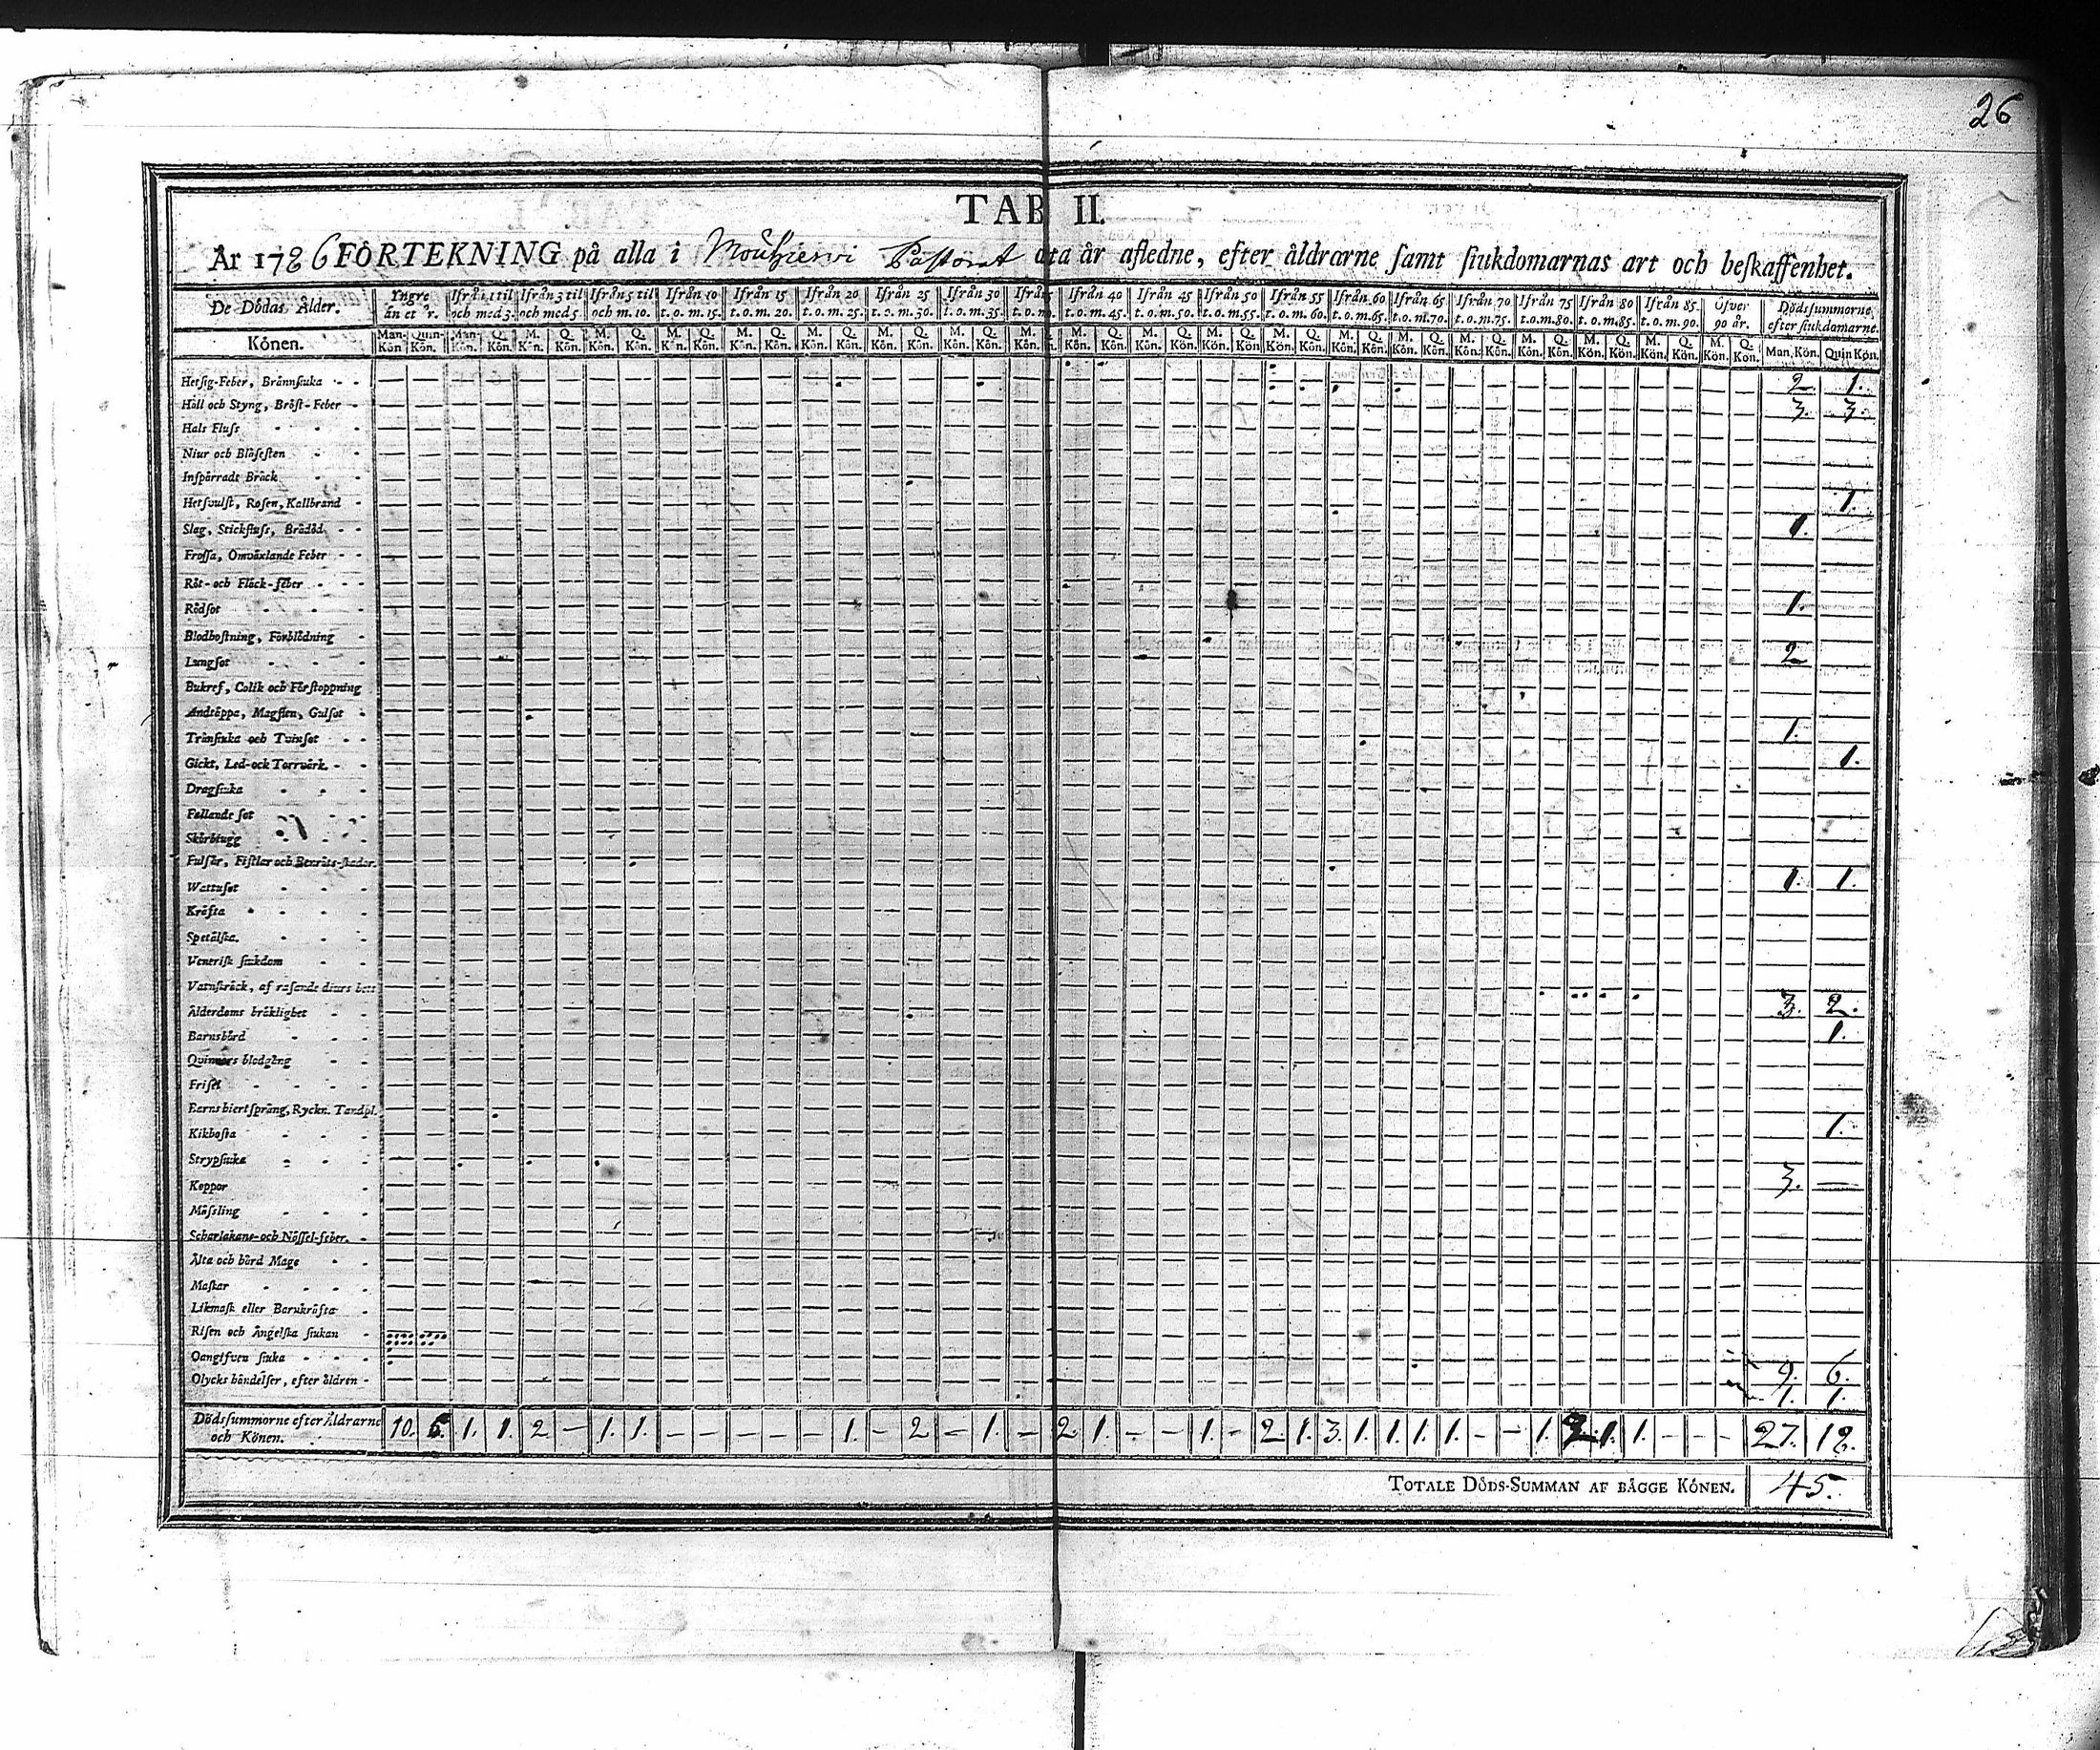 26
TAB. II.
År 1786 FÖRTEKNING på alla i Mouhijerwi Pastorat åta år afledne, efter åldrarne samt siukdomarnas art och beskaffenhet.
De Dödas Ålder. Yngre än et år. Ifrån 1 til och med 3. Ifrån 3 til och med 5. Ifrån 5 til och m. 10. Ifrån 10 t. o. m. 15. Ifrån 15 t. o. m. 20. Ifrån 20 t. o. m. 25. Ifrån 25 t. o. m. 30. Ifrån 30 t. o. m. 35. Ifrån t. o. m. Ifrån 40 t. o. m. 45. Ifrån 45 t. o. m. 50. Ifrån 50 t. o. m. 55. Ifrån 55 t. o. m. 60. Ifrån 60 t. o. m. 65. Ifrån 65 t. o. m. 70. Ifrån 70 t. o. m. 75. Ifrån 75 t. o. m. 80. Ifrån 80 t. o. m. 85. Ifrån 85. t. o. m. 90. Öfver 90 år. Dödssummorne efter siukdomarne.
Könen. Man-Kön. Quin-Kön. Man-Kön. Q. Kön. M. Kön. Q. Kön. M. Kön. Q. Kön. M. Kön. Q. Kön. M. Kön. Q. Kön. M. Kön. Q. Kön. M. Kön. Q. Kön. M. Kön. Q. Kön. M. Kön. M. Kön. Q. Kön. M. Kön. Q. Kön. M. Kön. Q. Kön. M. Kön. Q. Kön. M. Kön. Q. Kön. M. Kön. Q. Kön. M. Kön. Q. Kön. M. Kön. Q. Kön. M. Kön. Q. Kön. M. Kön. Q. Kön. M. Kön. Q. Kön. Man. Kön. Quin Kön.
Hetsig-Feber, Brännsiuka 2 1.
Håll och Styng, Bröst-Feber 3. 3.
Hals Fluss
Niur och Blåsesten
Inspärradt Bråck
Hetsvulst, Rosen, Kallbrand 1.
Slag, Stickfluss, Brådöd 1.
Frossa, Omväxlande Feber
Röt- och Fläck-feber
Rödsot 1.
Blodhostning, Förblödning
Lungsot 2
Bukref, Colik och Förstoppning
Andtäppa, Magsten, Gulsot
Trånsiuka och Tvinsot 1.
Gickt, Led- ock Torrvärk 1.
Dragsiuka
Fallande sot
Skörbiugg
Fulsår, Fistlar och Benröts-skador.
Wattusot 1. 1.
Kräfta
Spetälska.
Venerisk siukdom
Vatuskräck, af rasande diurs bett
Ålderdoms bräklighet 3. 2.
Barnsbörd 1.
Quinnors blodgång
Frisel
Barns hiertsprång, Ryckn. Tandpl.
Kikhosta 1.
Strypsiuka
Koppor 3.
Mässling
Scharlakans- och Nässel-feber.
Älta och hård Mage
Maskar
Likmask eller Barnkräfta
Risen och Ängelska siukan
Oangifven siuka 9. 6.
Olycks händelser, efter åldren 1. 1.
Dödssummorne efter Åldrarne och Könen. 10. 6. 1. 1. 2 – 1. 1. – – – – – 1. – 2 – 1. – 2. 1. – – 1. – 2. 1. 3. 1. 1. 1. 1. – – 1. 2. 1. 1. – – – 27. 18.
TOTALE DÖDS-SUMMAN AF BÄGGE KÖNEN. 45.